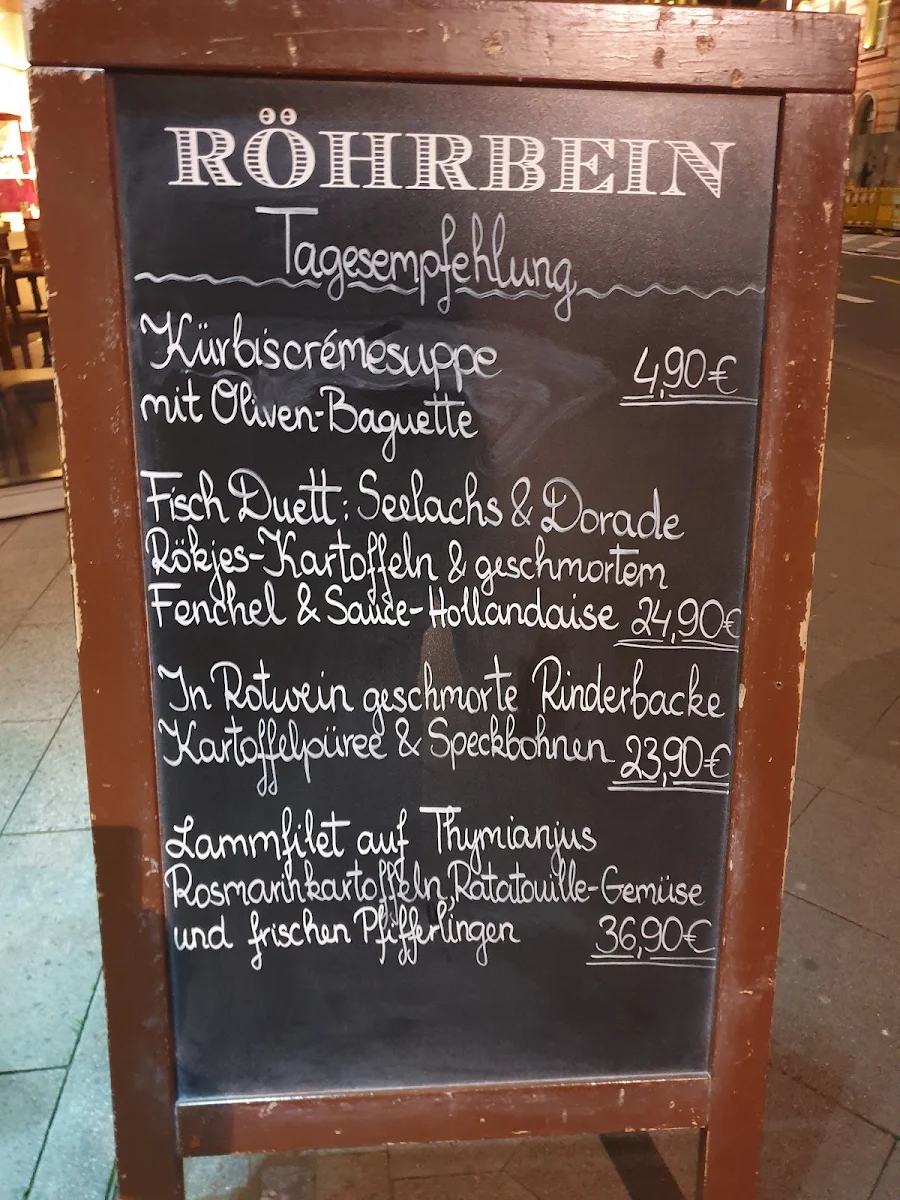 RÖHRBEIN
Tagesempfehlung
Kürbiscrémesuppe 4,90€
mit Oliven-Baguette
Fisch Duett: Seelachs & Dorade
Rökjes-Kartoffeln & geschmortem
Fenchel & Sauce-Hollandaise 24,90€
In Rotwein geschmorte Rinderbacke
Kartoffelpüree & Speckbohnen 23,90€
Lammfilet auf Thymianjus
Rosmarinkartoffeln, Ratatouille-Gemüse
und frischen Pfifferlingen 36,90€